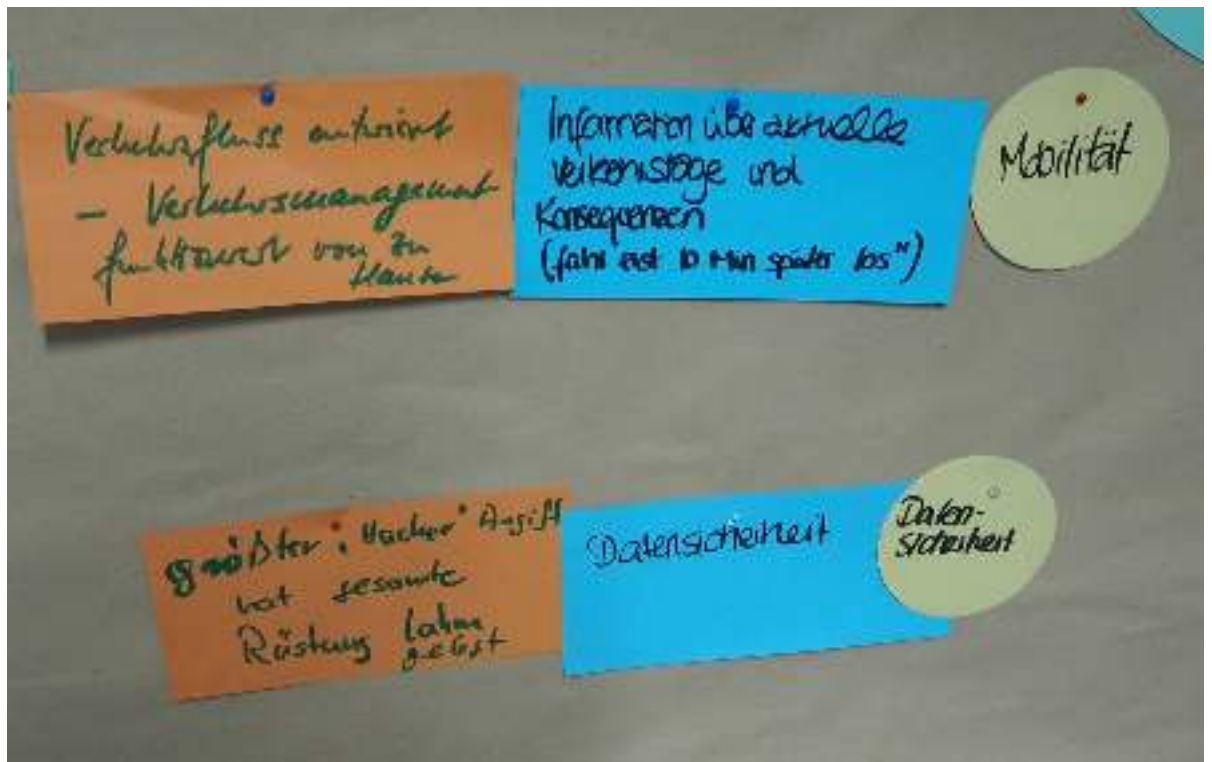 Verkehrsfluss
– Verkehrsmanagement
funktioniert von zu
Hause
Information über aktuelle
und
Konsequenzen
(fahr erst 10 Min später los")
Mobilität
größter "Hacker" Angriff
hat gesamte
Rüstung lahm
gelegt
Datensicherheit
Daten-
sicherheit